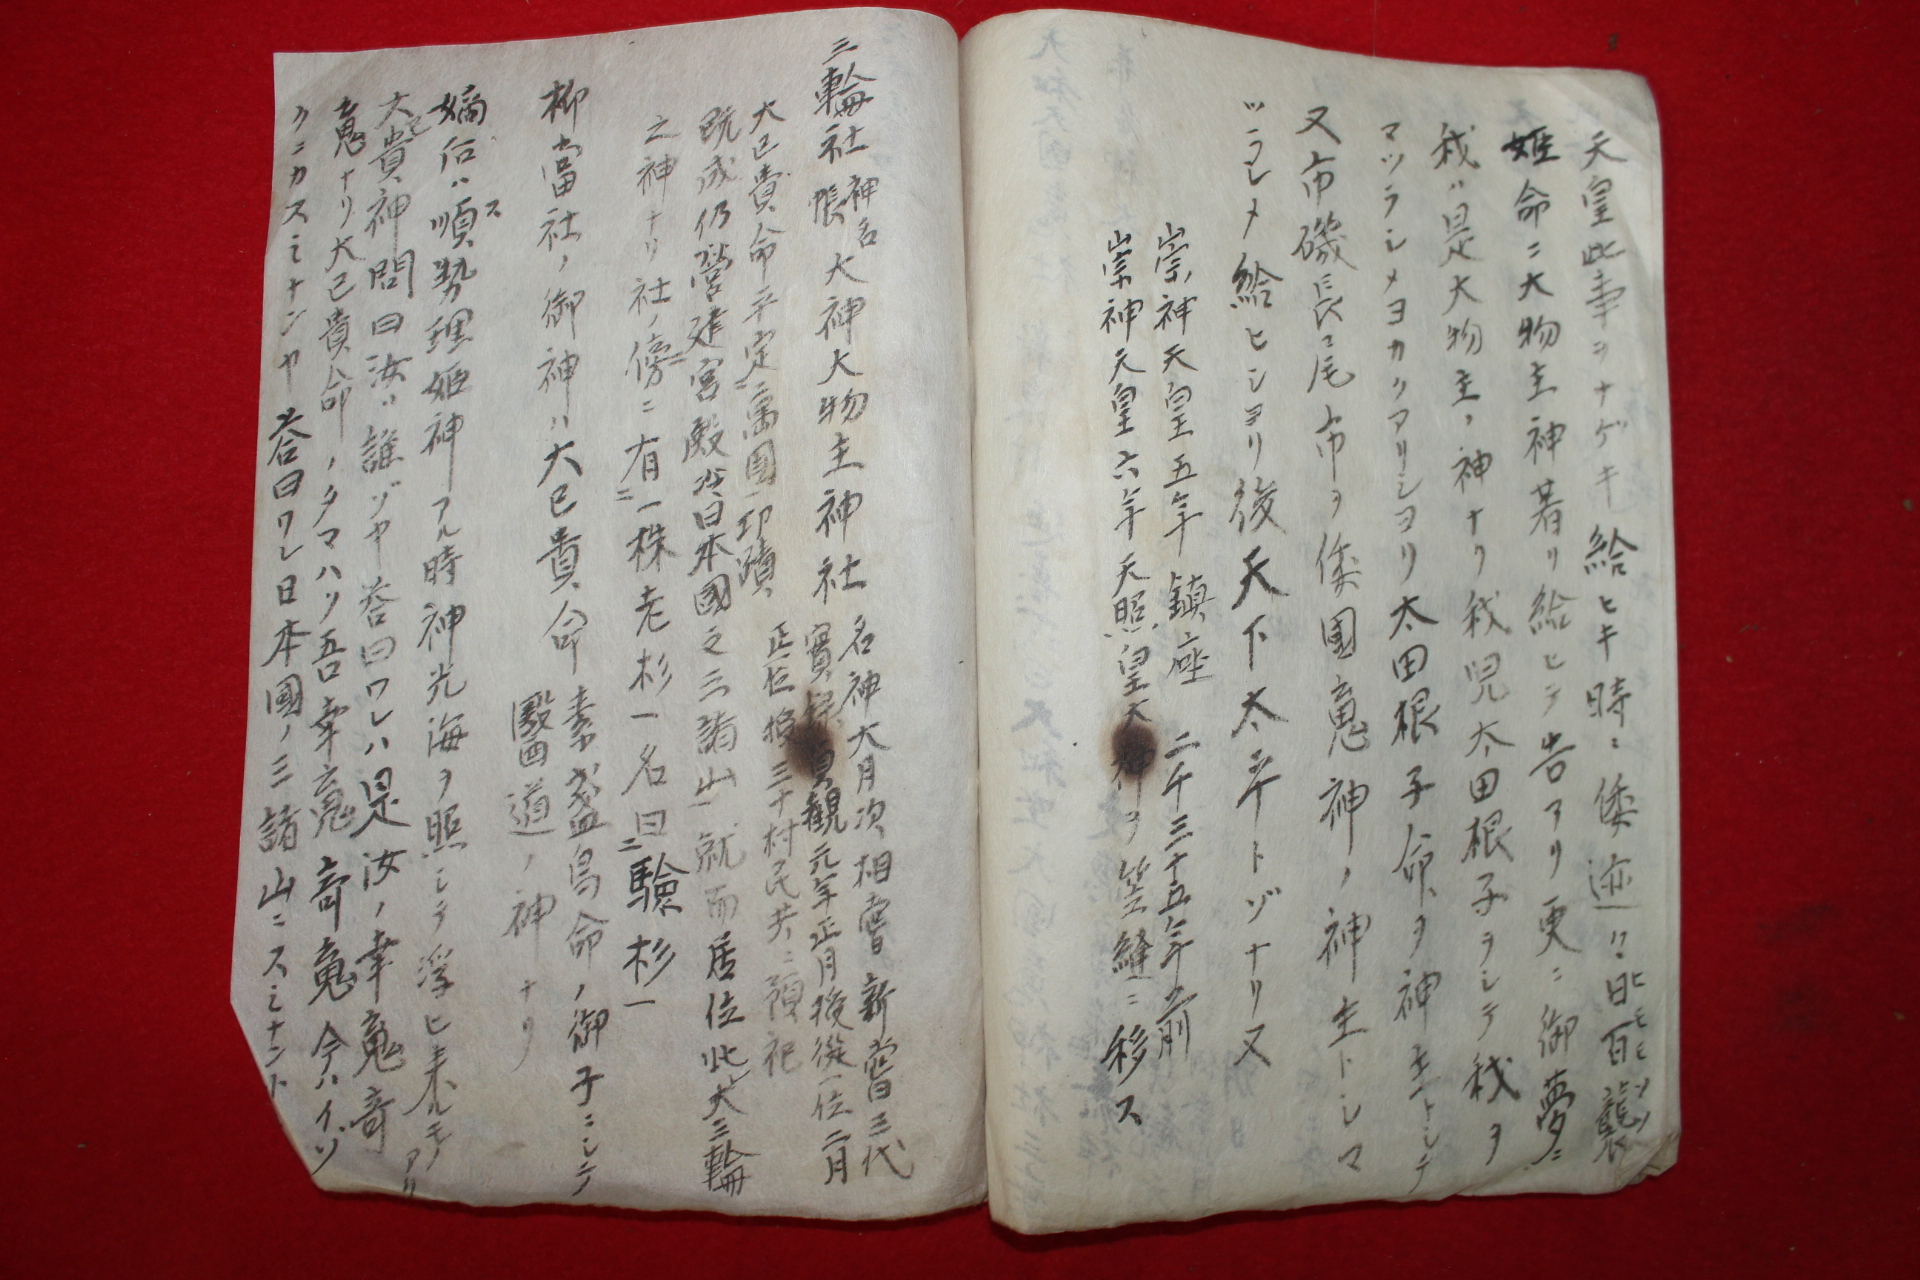 天皇此事ヲナゲキ給ヒキ時ニ倭迹々日百襲
ヒモモソソ
姫命ニ大物主神著リ給ヒテ告アリ更ニ御夢ニ
我ハ是大物主ノ神ナリ我児太田根子ヲシテ我ヲ
マツラシメヨカクアリシヨリ太田根子命ヲ神主トシテ
又市磯長尾市ヲ倭國魂神ノ神主トシマ
ツラシメ給ヒシヨリ後天下太平トゾナリヌ
崇神天皇五年鎮座 二千三十五年前
崇神天皇六年天照皇大神ヲ笠縫ニ移ス
三輪社 神名帳 大神大物主神社 名神大月次相嘗新嘗三代
實録貞観元年正月授從一位二月
正一位 三十村民共ニ預祀
大已貴命平定萬國印蹟
既成仍營建宮殿於日本國之三諸山就而居位此大三輪
之神ナリ社ノ傍ニ有一株老杉一名曰驗杉
柳當社ノ御神ハ大已貴命 素盞烏命ノ御子ニシテ
醫道ノ神ナリ
嫡后ハ順勢理姫神アル時神光海ヲ照シテ浮ヒ来ルモノアリ
ス
大已貴神問曰汝ハ誰ゾヤ答曰ワレハ是汝ノ幸魂奇
魂ナリ大已貴命ノタマハク吾幸魂奇魂今ハイヅ
クニカスミナンヤ答曰ワレ日本國ノ三諸山ニスミナント